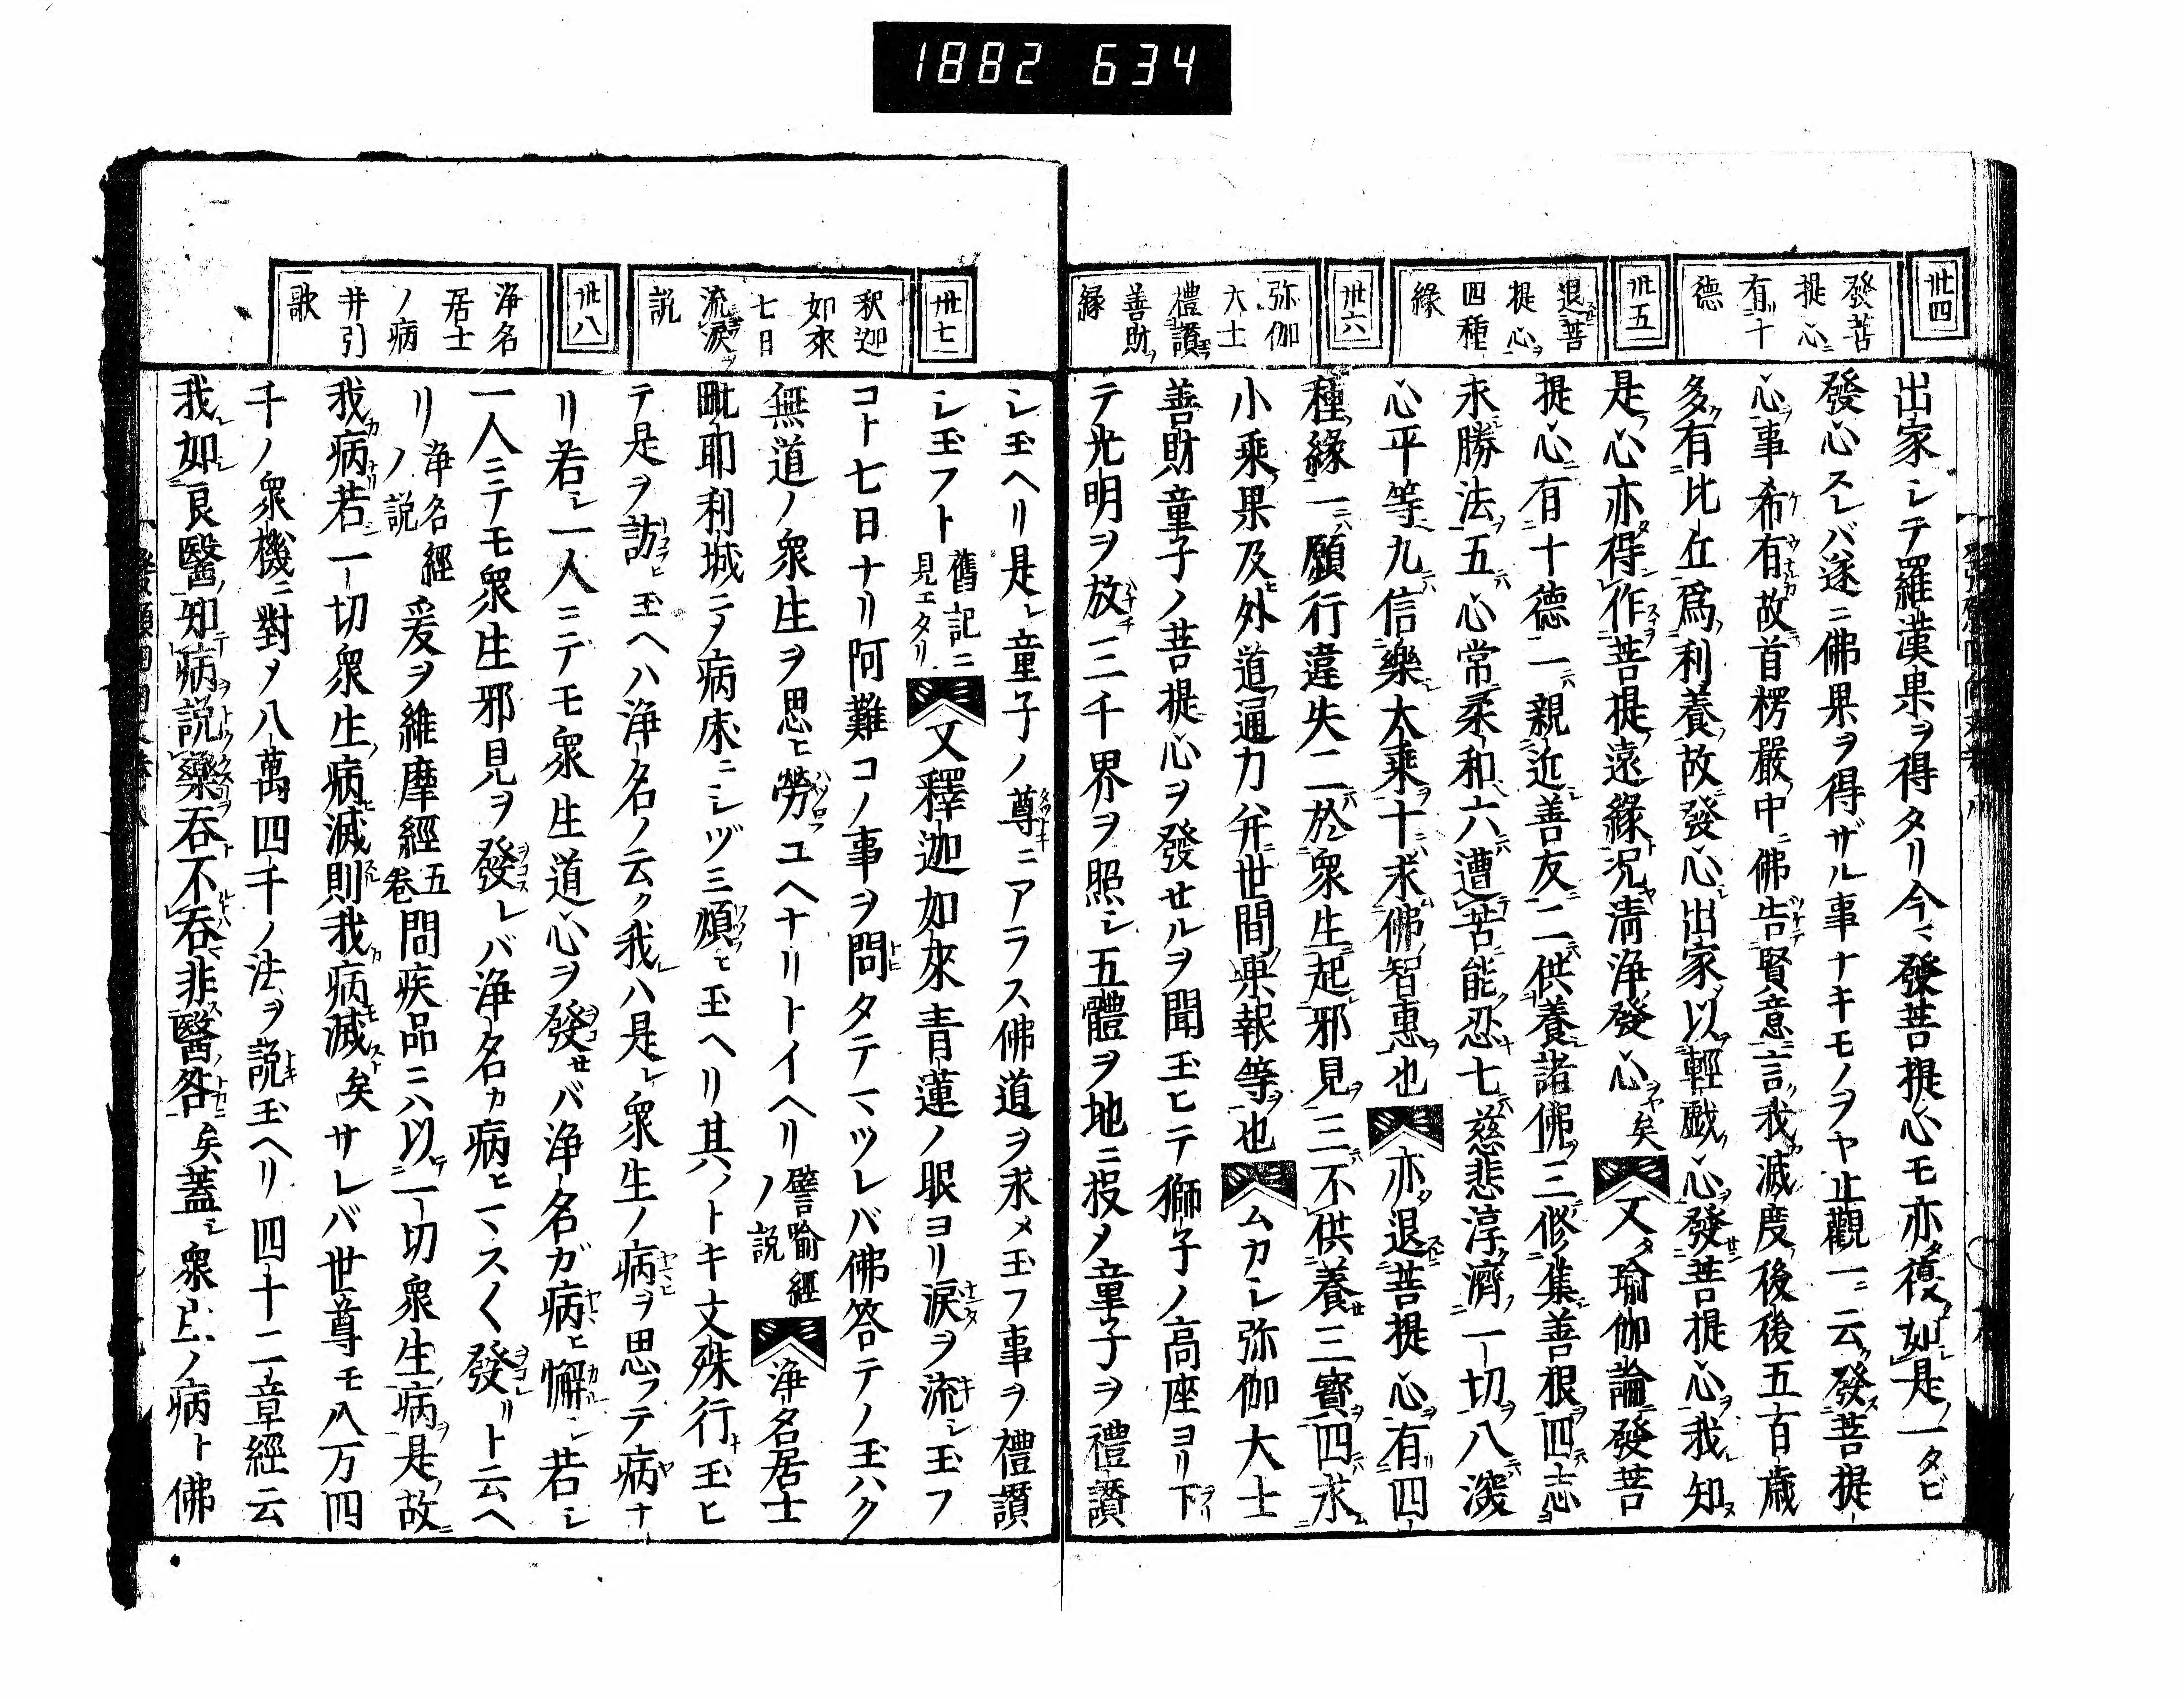 1882 634
卅四
發菩
提心ニ
有十
德
卅五
退菩
提心ヲ
四種
緣
卅六
弥伽
大士
禮讃
善財ヲ
緣
出家シテ羅漢果ヲ得タリ今マ發菩提心モ亦タ復タ如是ノ一タビ
發心スレバ遂ニ佛果ヲ得ザル事ナキモノヲヤ止觀一ニ云ク發ス菩提
心ヲ事希有ナルカ故ニ首楞嚴ノ中ニ佛告ケテ賢意ニ言ク我カ滅度ノ後後五百歳ニ
多ク有比丘爲ノ利養ノ故ニ發心シ出家ス以輕戯ノ心ヲ發セニ菩提心ヲ我レ知ヌ
是ノ心亦タ得作スヿヲ菩提ノ遠緣ト况ヤ清淨ノ發心ヲヤ矣又タ瑜伽論ニ發菩
提心ニ有十德一ニハ親近善友ニ二ニハ供養諸佛ヲ三ニハ修集善根ヲ四ニハ志
求勝法ヲ五ニハ心常ニ柔和六ニハ遭テ苦ニ能忍七ニハ慈悲淳濟一切ヲ八ニハ深
心平等九ニハ信樂大乘ヲ十ニハ求佛ノ智惠ヲ也亦タ退菩提心ヲ有四
種ノ緣一ニハ願行違失二ニハ於衆生ニ起邪見ヲ三ニハ不供養三寳ヲ四ニハ求
小乘ノ果及ヒ外道ノ通力并ニ世間ノ果報等ヲ也ムカシ弥伽大士
善財童子ノ菩提心ヲ發セルヲ聞玉ヒテ獅子ノ高座ヨリ下
テ光明ヲ放チ三千界ヲ照シ五體ヲ地ニ投メ童子ヲ禮讃
卅七
釈迦
如來
七日
流涙ヲ
説
卅八
淨名
居士
ノ病
并引
歌
シ玉ヘリ是レ童子ノ尊キニアラス佛道ヲ求メ玉フ事ヲ禮讃
シ玉フト舊記ニ見エタリ又釋迦如來青蓮ノ眼ヨリ涙ヲ流シ玉フ
コト七日ナリ阿難コノ事ヲ問タテマツレバ佛答テノ玉ハク
無道ノ衆生ヲ思ヒ勞ユヘナリトイヘリ譬喩經ノ説淨名居士
毗耶利城ニテ病床ニシヅミ煩ヒ玉ヘリ其ノトキ文殊行キ玉ヒ
テ是ヲ訪ヒ玉ヘハ淨名ノ云ク我レハ是レ衆生ノ病ヲ思フテ病ナ
リ若シ一人ニテモ衆生道心ヲ發セバ淨名ガ病ヒ懈ン若シ
一人ニテモ衆生邪見ヲ發レバ淨名カ病ヒマス〱發リト云ヘ
リ淨名經ノ説爰ヲ維摩經五卷問疾品ニハ以テ一切衆生病ヲ是ノ故ニ
我カ病ナリ若一切衆生ノ病滅則我カ病モ滅スト矣サレバ世尊モ八万四
千ノ衆機ニ對メ八萬四千ノ法ヲ説玉ヘリ四十二章經云
我レ如シ良醫ノ知テ病ヲ説藥ヲ吞ト不ルトハ吞非ス醫ノ咎ニ矣蓋シ衆生ノ病ト佛